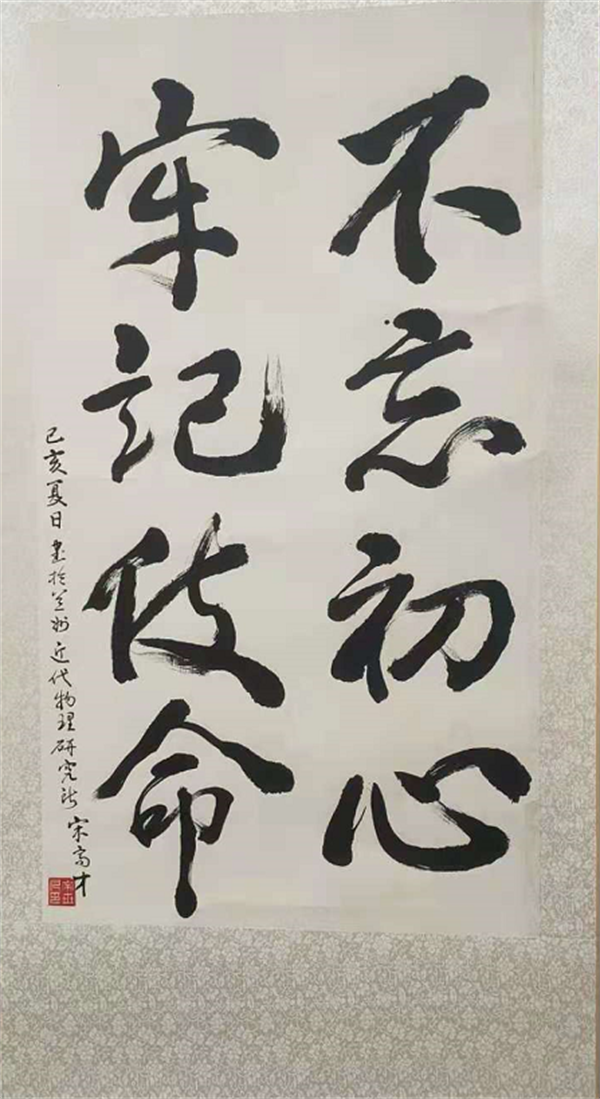 不忘初心
牢记使命
己亥夏日书于兰州近代物理研究所 宋高才